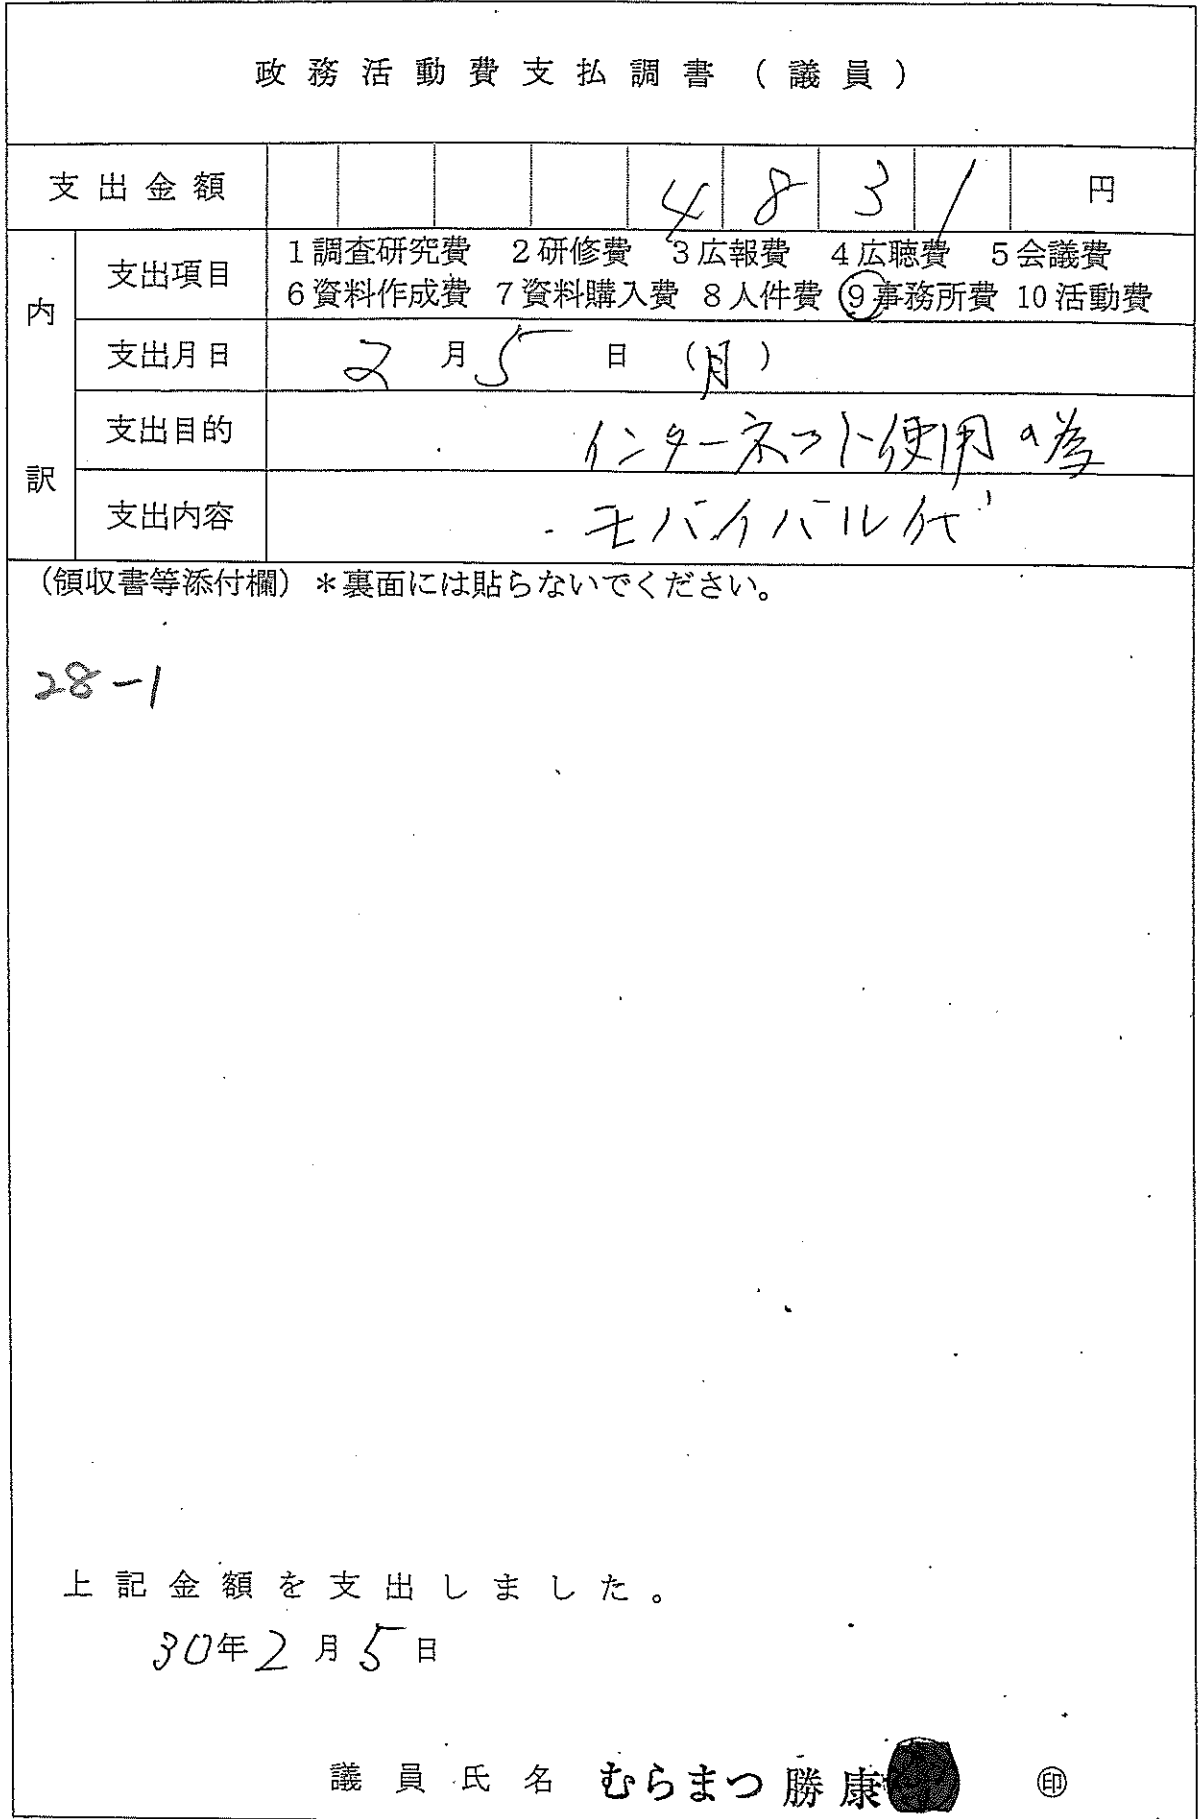 政務活動費支払調書（議員）
支出金額 4831 円
内訳
支出項目 1調査研究費 2研修費 3広報費 4広聴費 5会議費
6資料作成費 7資料購入費 8人件費 9事務所費 10活動費
支出月日 2月5日（月）
支出目的 インターネット使用の為
支出内容 モバイバル代
（領収書等添付欄）＊裏面には貼らないでください。
28-1
上記金額を支出しました。
30年2月5日
議員氏名 むらまつ勝康 ㊞